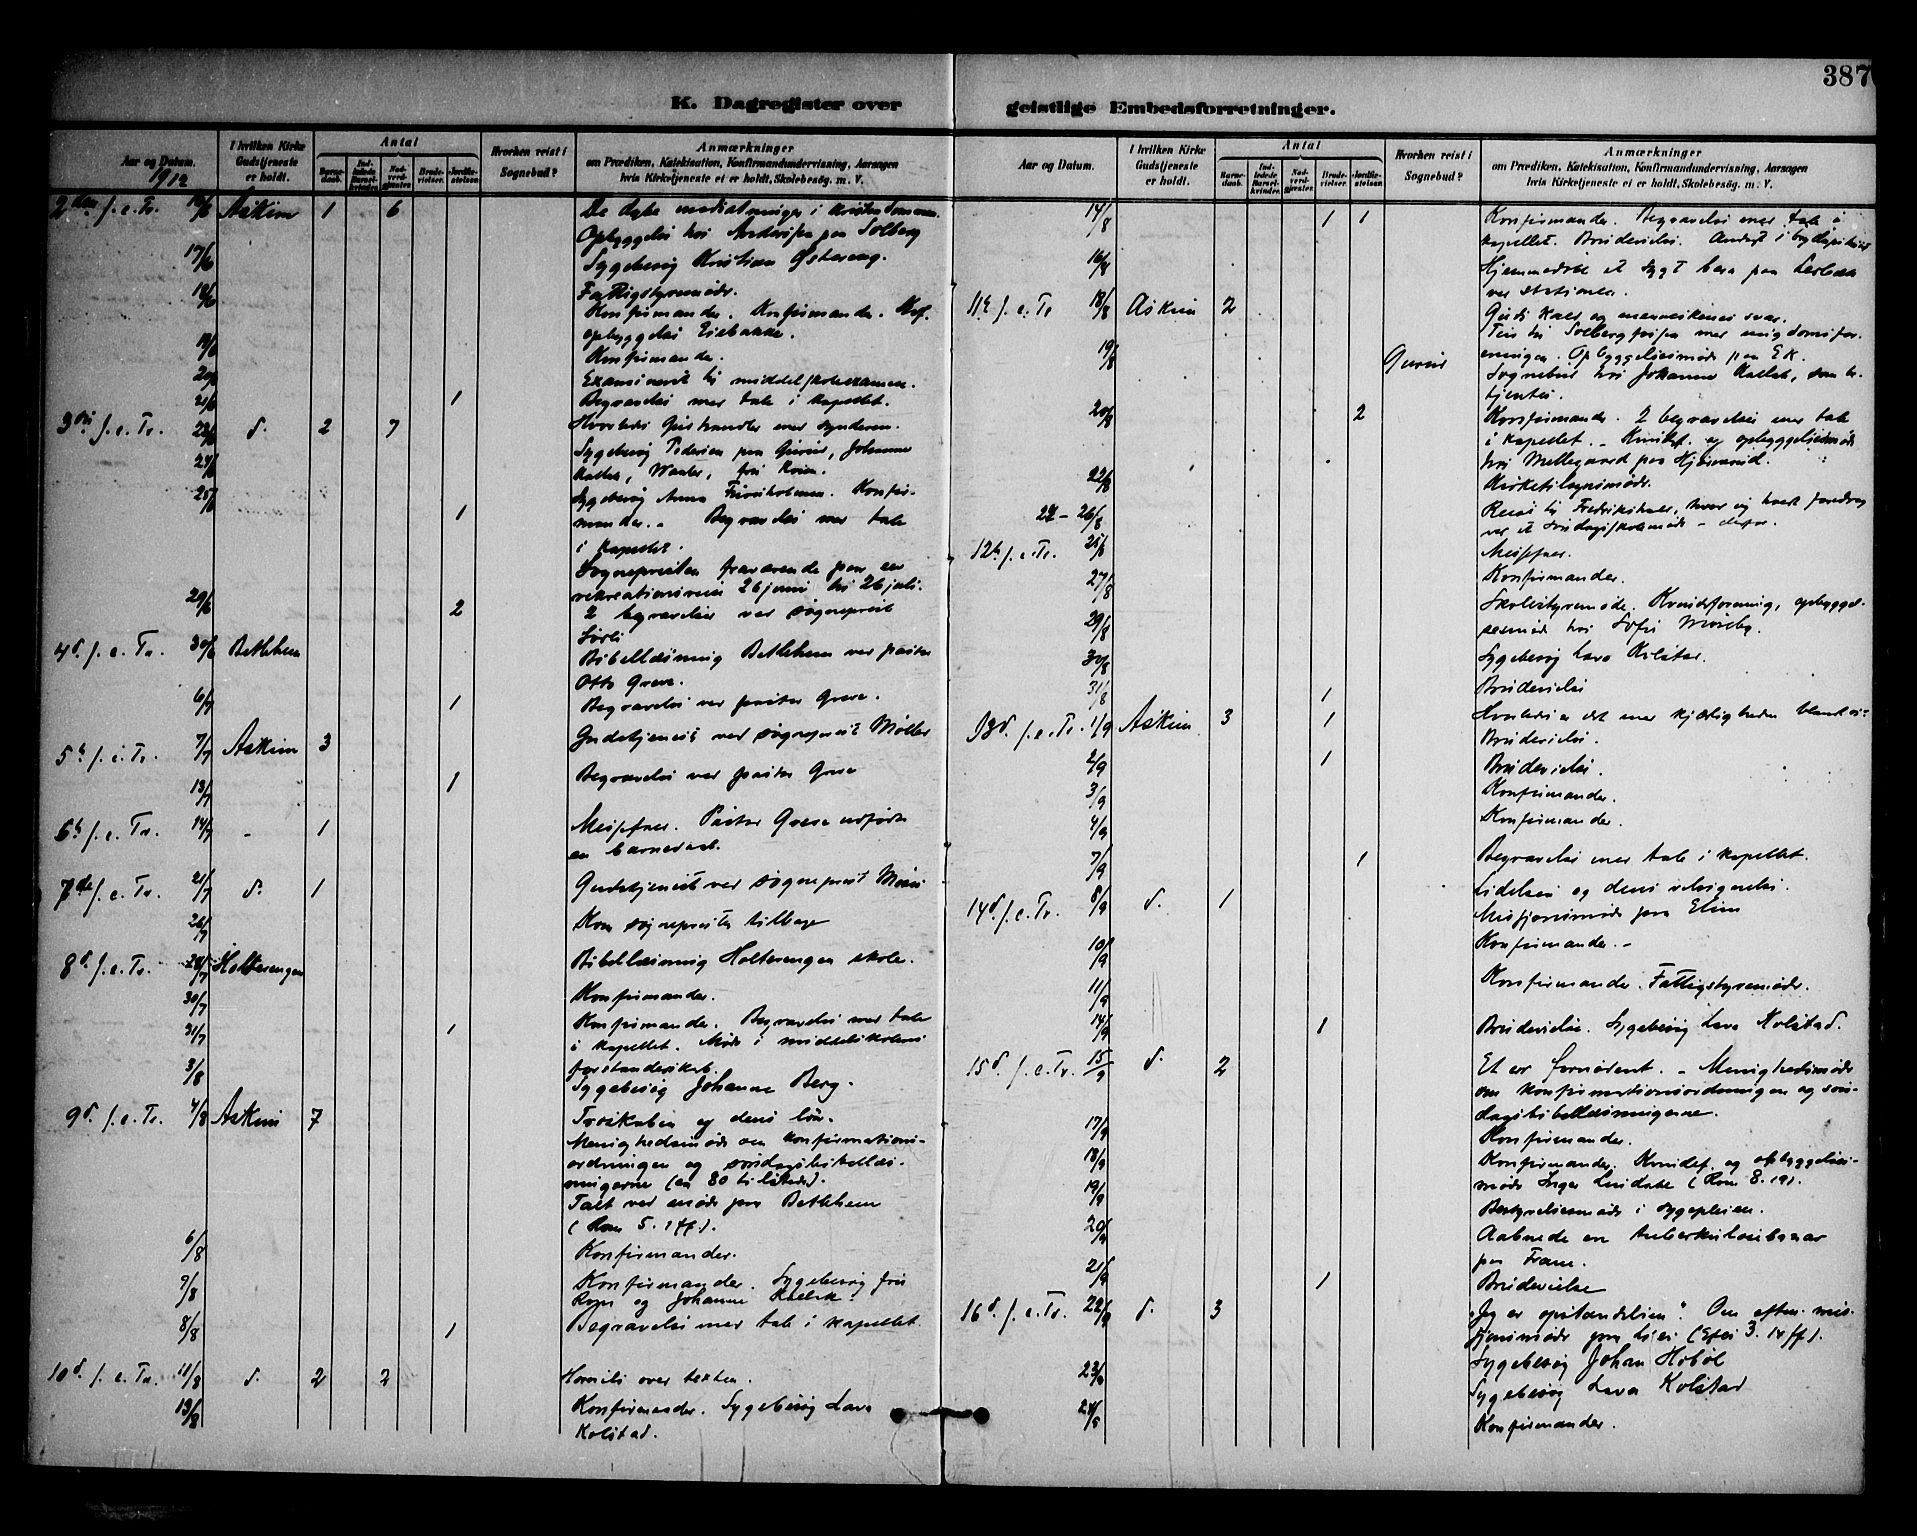 387
K. Dagregister over
geistlige Embedsforretninger.
Aar og Datum.
1912
I hvilken Kirke Gudstjeneste er holdt.
Antal
Barnedaab.
Indledede Barselkvinder.
Nadverdgjester.
Brudevielser.
Jordfæstelser.
Hvorhen reist i Sognebud?
Anmærkninger
om Prædiken, Katekisation, Konfirmandundervisning, Aarsagen
hvis Kirketjeneste ei er holdt, Skolebesøg. m. V.
2den s. e. Tr. 16/6 Askim 1 6 De dybe i kristendommen.
Opbyggelse hos paa Solberg
17/6 Sygebesøg Kristian Østereng.
18/6 Fattigstyremøde.
Konfirmander. Konfirmander.
opbyggelse
19/6 Konfirmander.
20/6 til middelskoleexamen.
21/6 1 Begravelse med tale i kapellet.
3die s. e. Tr. 23/6 d. 2 7 Hvorledes Gud handler med synderen.
24/6 Sygebesøg Pedersen paa Gurud, Johanne
25/6 Sygebesøg Anna Konfir-
1 mander. - Begravelse med tale
i kapellet.
Sognepresten fraværende paa en
rekreationsreise 26 juni til 26 juli.
29/6 2 2 begravelser ved sogneprest
Sørli
4d. s. e. Tr. 30/6 Betlehem Bibellæsning Betlehem ved pastor
Otto Greve.
6/7 1 Begravelse ved pastor Greve.
5te s. e. Tr. 7/7 Askim 3 Gudstjeneste ved sogneprest Møller
13/7 1 Begravelse ved pastor Greve
6te s. e. Tr. 14/7 - 1 Messefald. Pastor Greve udførte
en barnedaab.
7de s. e. Tr. 21/7 d. 1 Gudstjeneste ved sogneprest
26/7 Kom sognepresten tilbage
8d. s. e. Tr. 28/7 Holterengen Bibellæsning Holterengen skole.
30/7 Konfirmander.
31/7 1 Konfirmander. Begravelse med tale
i kapellet. Møde i middelskolens
forstanderskab.
3/8 Sygebesøg Johanne Berg.
9d. s. e. Tr. 4/8 Askim 7 Troskaben og dens løn.
Menighedsmøde om konfirmations-
ordningen og søndagsbibellæs-
ningerne (ca 80 tilstede).
Talt ved møde paa Betlehem
(Rom 5. 1 ff).
6/8 Konfirmander.
7/8 Konfirmander. Sygebesøg
og Johanne
8/8 1 Begravelse med tale i kapellet.
10d. s. e. Tr. 11/8 d. 2 2 Homili over texten.
13/8 Konfirmander. Sygebesøg Lava
Kolstad.
Aar og Datum.
I hvilken Kirke Gudstjeneste er holdt.
Antal
Barnedaab.
Indledede Barselkvinder.
Nadverdgjester.
Brudevielser.
Jordfæstelser.
Hvorhen reist i Sognebud?
Anmærkninger
om Prædiken, Katekisation, Konfirmandundervisning, Aarsagen
hvis Kirketjeneste ei er holdt, Skolebesøg. m. V.
14/8 1 1 Konfirmander. Begravelse med tale i
kapellet. Brudevielse. Andagt i
16/8 Hjemmedøbt et sygt barn paa
ved stationen.
11te s. e. Tr 18/8 Askim 2 Guds kald og menneskenes svar.
til Solbergfossen med ungdomsfor-
eningen. Opbyggelsesmøde paa Ek.
19/8 Gurud Sognebud hos Johanne
20/8 2 Konfirmander. 2 begravelser med tale
i kapellet. - Kvindef. og opbyggelsesmøde
hos Mellegaard paa
22/8 Kirketilsynsmøde.
24 - 26/8 Reise til Fredrikshald, hvor jeg holdt foredrag
ved et søndagsskolemøde
12te s. e. Tr. 25/8 Messefald.
27/8 Konfirmander.
29/8 Skolestyremøde. Kvindeforening, opbyggel-
sesmøde hos Sofie
30/8 Sygebesøg Lava Kolstad.
31/8 1 Brudevielse
13d. s. e. Tr. 1/9 Askim 3 1 Hvorledes er det med kjærligheden blandt os?
Brudevielse.
2/9 1 Brudevielse.
3/9 Konfirmander.
4/9 Konfirmander.
7/9 1 Begravelse med tale i kapellet.
14d. s. e. Tr. 8/9 d. 1 Lidelsen og dens velsignelse.
Missjonsmøde paa Elim
10/9 Konfirmander. -
11/9 Konfirmander. Fattigstyremøde.
14/9 1 Brudevielse. Sygebesøg Lava Kolstad.
15d. s. e. Tr. 15/9 d. 2 Et er fornødent. - Menighedsmøde
om konfirmationsordningen og søn-
dagsbibellæsningerne.
17/9 Konfirmander.
18/9 Konfirmander. Kvindef. og opbyggelses-
møde Inger (Rom 8. 19).
19/9 Bestyrelsesmøde i sygepleien.
20/9 Aabnede en tuberkulosebasar
paa Fram.
21/9 1 Brudevielse
16d. s. e. Tr. 22/9 d. 3 "Jeg er opstandelsen". Om efterm. mis-
sjonsmøde paa (Efes 3. 14 ff).
23/9 Sygebesøg Johan Hobøl
Sygebesøg Lava Kolstad
24/9 Konfirmander.